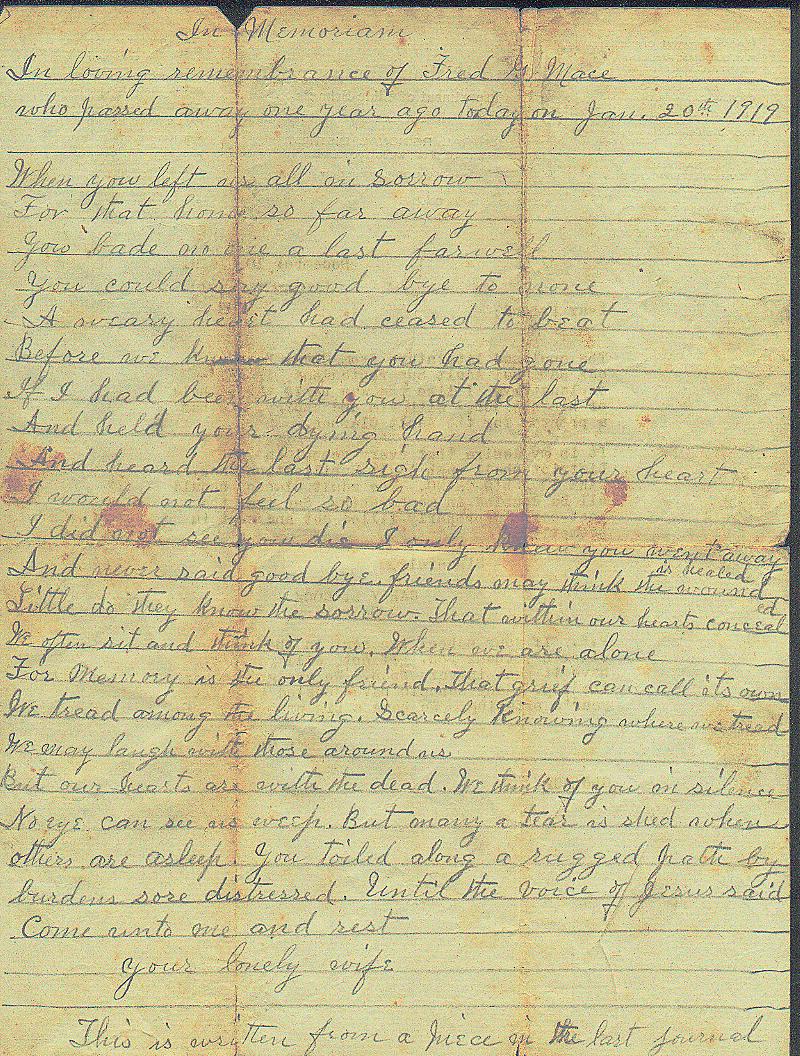 In Memoriam
In loving remembrance of Fred G Mace
who passed away one year ago today on Jan. 20th 1919
When you left us all in sorrow
For that home so far away
You bade no one a last farwell
You could say good bye to none
A weary heart had ceased to beat
Before we knew that you had gone
If I had been with you at the last
And held your dying hand
And heard the last sigh from your heart
I would not feel so bad
I did not see you die I only know you went away
And never said good bye. friends may think the wound is healed
Little do they know the sorrow. That within our hearts concealed
We often sit and think of you. When we are alone
For Memory is the only friend. That grief can call its own
We tread among the living. Scarcely knowing where we tread
We may laugh with those around us
But our hearts are with the dead. We think of you in silence
No eye can see us weep. But many a tear is shed when
others are asleep. You toiled along a rugged path by
burdens sore distressed. Until the voice of Jesus said
Come unto me and rest
your lonely wife
This is written from a piece in the last journal